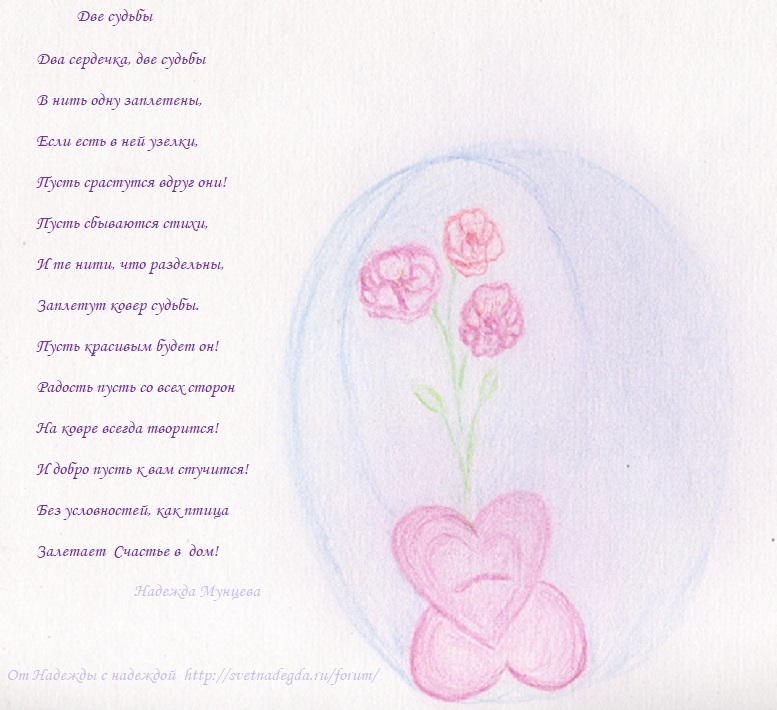 Две судьбы
Два сердечка, две судьбы
В нить одну заплетены,
Если есть в ней узелки,
Пусть срастутся вдруг они!
Пусть сбываются стихи,
И те нити, что раздельны,
Заплетут ковер судьбы.
Пусть красивым будет он!
Радость пусть со всех сторон
На ковре всегда творится!
И добро пусть к вам стучится!
Без условностей, как птица
Залетает Счастье в дом!
Надежда Мунцева
От Надежды с надеждой http://svetnadegda.ru/forum/